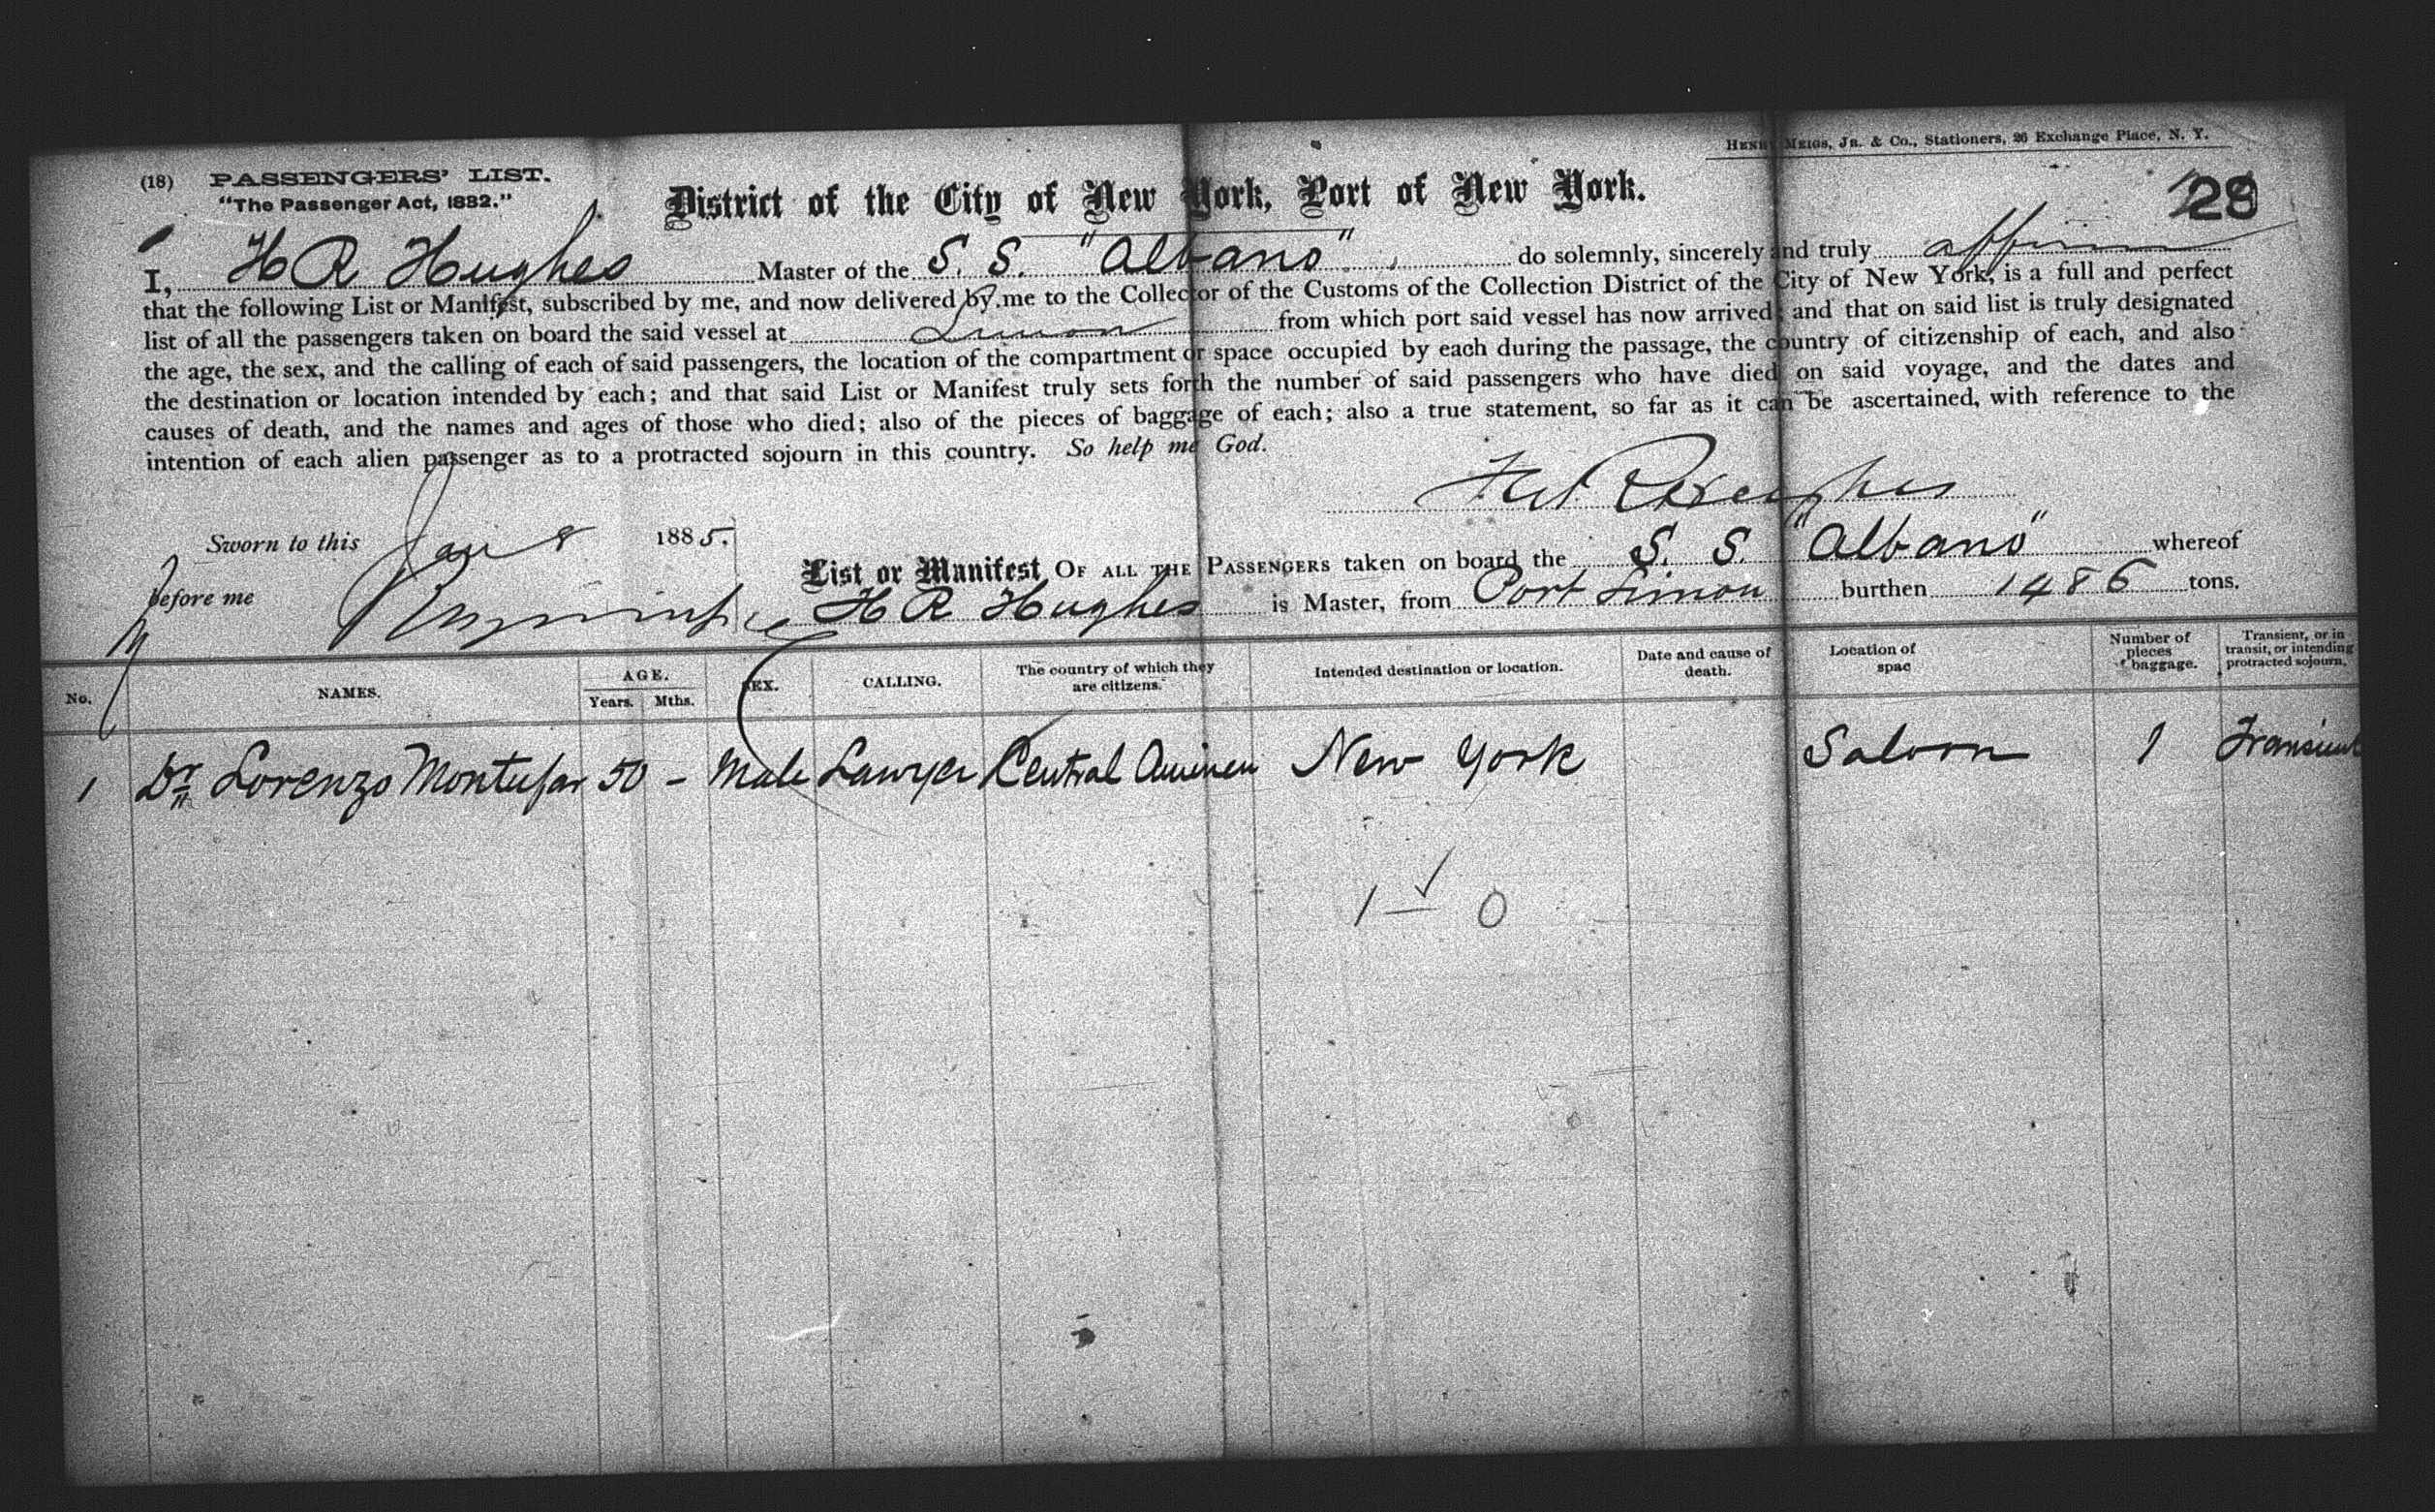 HENRY MEIGS, JR. & CO., Stationers, 26 Exchange Place, N. Y.
(18) PASSENGERS' LIST.
"The Passenger Act, 1882."
District of the City of New York, Port of New York.
28
I, H R Hughes Master of the S. S. "Albano" do solemnly, sincerely and truly affirm
that the following List or Manifest, subscribed by me, and now delivered by me to the Collector of the Customs of the Collection District of the City of New York, is a full and perfect
list of all the passengers taken on board the said vessel at Limon from which port said vessel has now arrived; and that on said list is truly designated
the age, the sex, and the calling of each of said passengers, the location of the compartment or space occupied by each during the passage, the country of citizenship of each, and also
the destination or location intended by each; and that said List or Manifest truly sets forth the number of said passengers who have died on said voyage, and the dates and
causes of death, and the names and ages of those who died; also of the pieces of baggage of each; also a true statement, so far as it can be ascertained, with reference to the
intention of each alien passenger as to a protracted sojourn in this country. So help me God.
Hughes
Sworn to this Jan 8 1885.
List or Manifest OF ALL THE PASSENGERS taken on board the S. S. "Albano" whereof
before me
H R Hughes is Master, from Port Limon burthen 1486 tons.
No. NAMES. AGE. Years. Mths. SEX. CALLING. The country of which they are citizens. Intended destination or location. Date and cause of death. Location of spac Number of pieces of baggage. Transient, or in transit, or intending protracted sojourn.
1 Dr Lorenzo Montufar 50 - Male Lawyer Central American New York Saloon 1 Transient
1 — 0